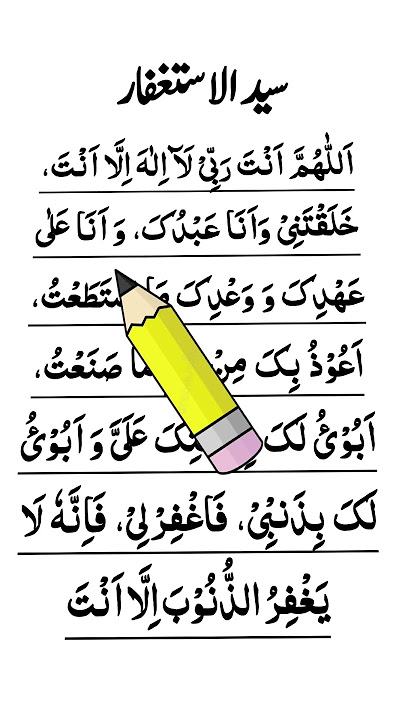 سید الاستغفار
اَللّٰهُمَّ اَنْتَ رَبِّیْ لَآ اِلٰهَ اِلَّا اَنْتَ،
خَلَقْتَنِیْ وَاَنَا عَبْدُکَ، وَ اَنَا عَلٰی
عَهْدِکَ وَ وَعْدِکَ
اَعُوْذُ بِکَ مِنْ صَنَعْتُ،
اَبُوْئُ لَکَ عَلَیَّ وَ اَبُوْئُ
لَکَ بِذَنْبِیْ، فَاغْفِرْ لِیْ، فَاِنَّهٗ لَا
یَغْفِرُ الذُّنُوْبَ اِلَّا اَنْتَ